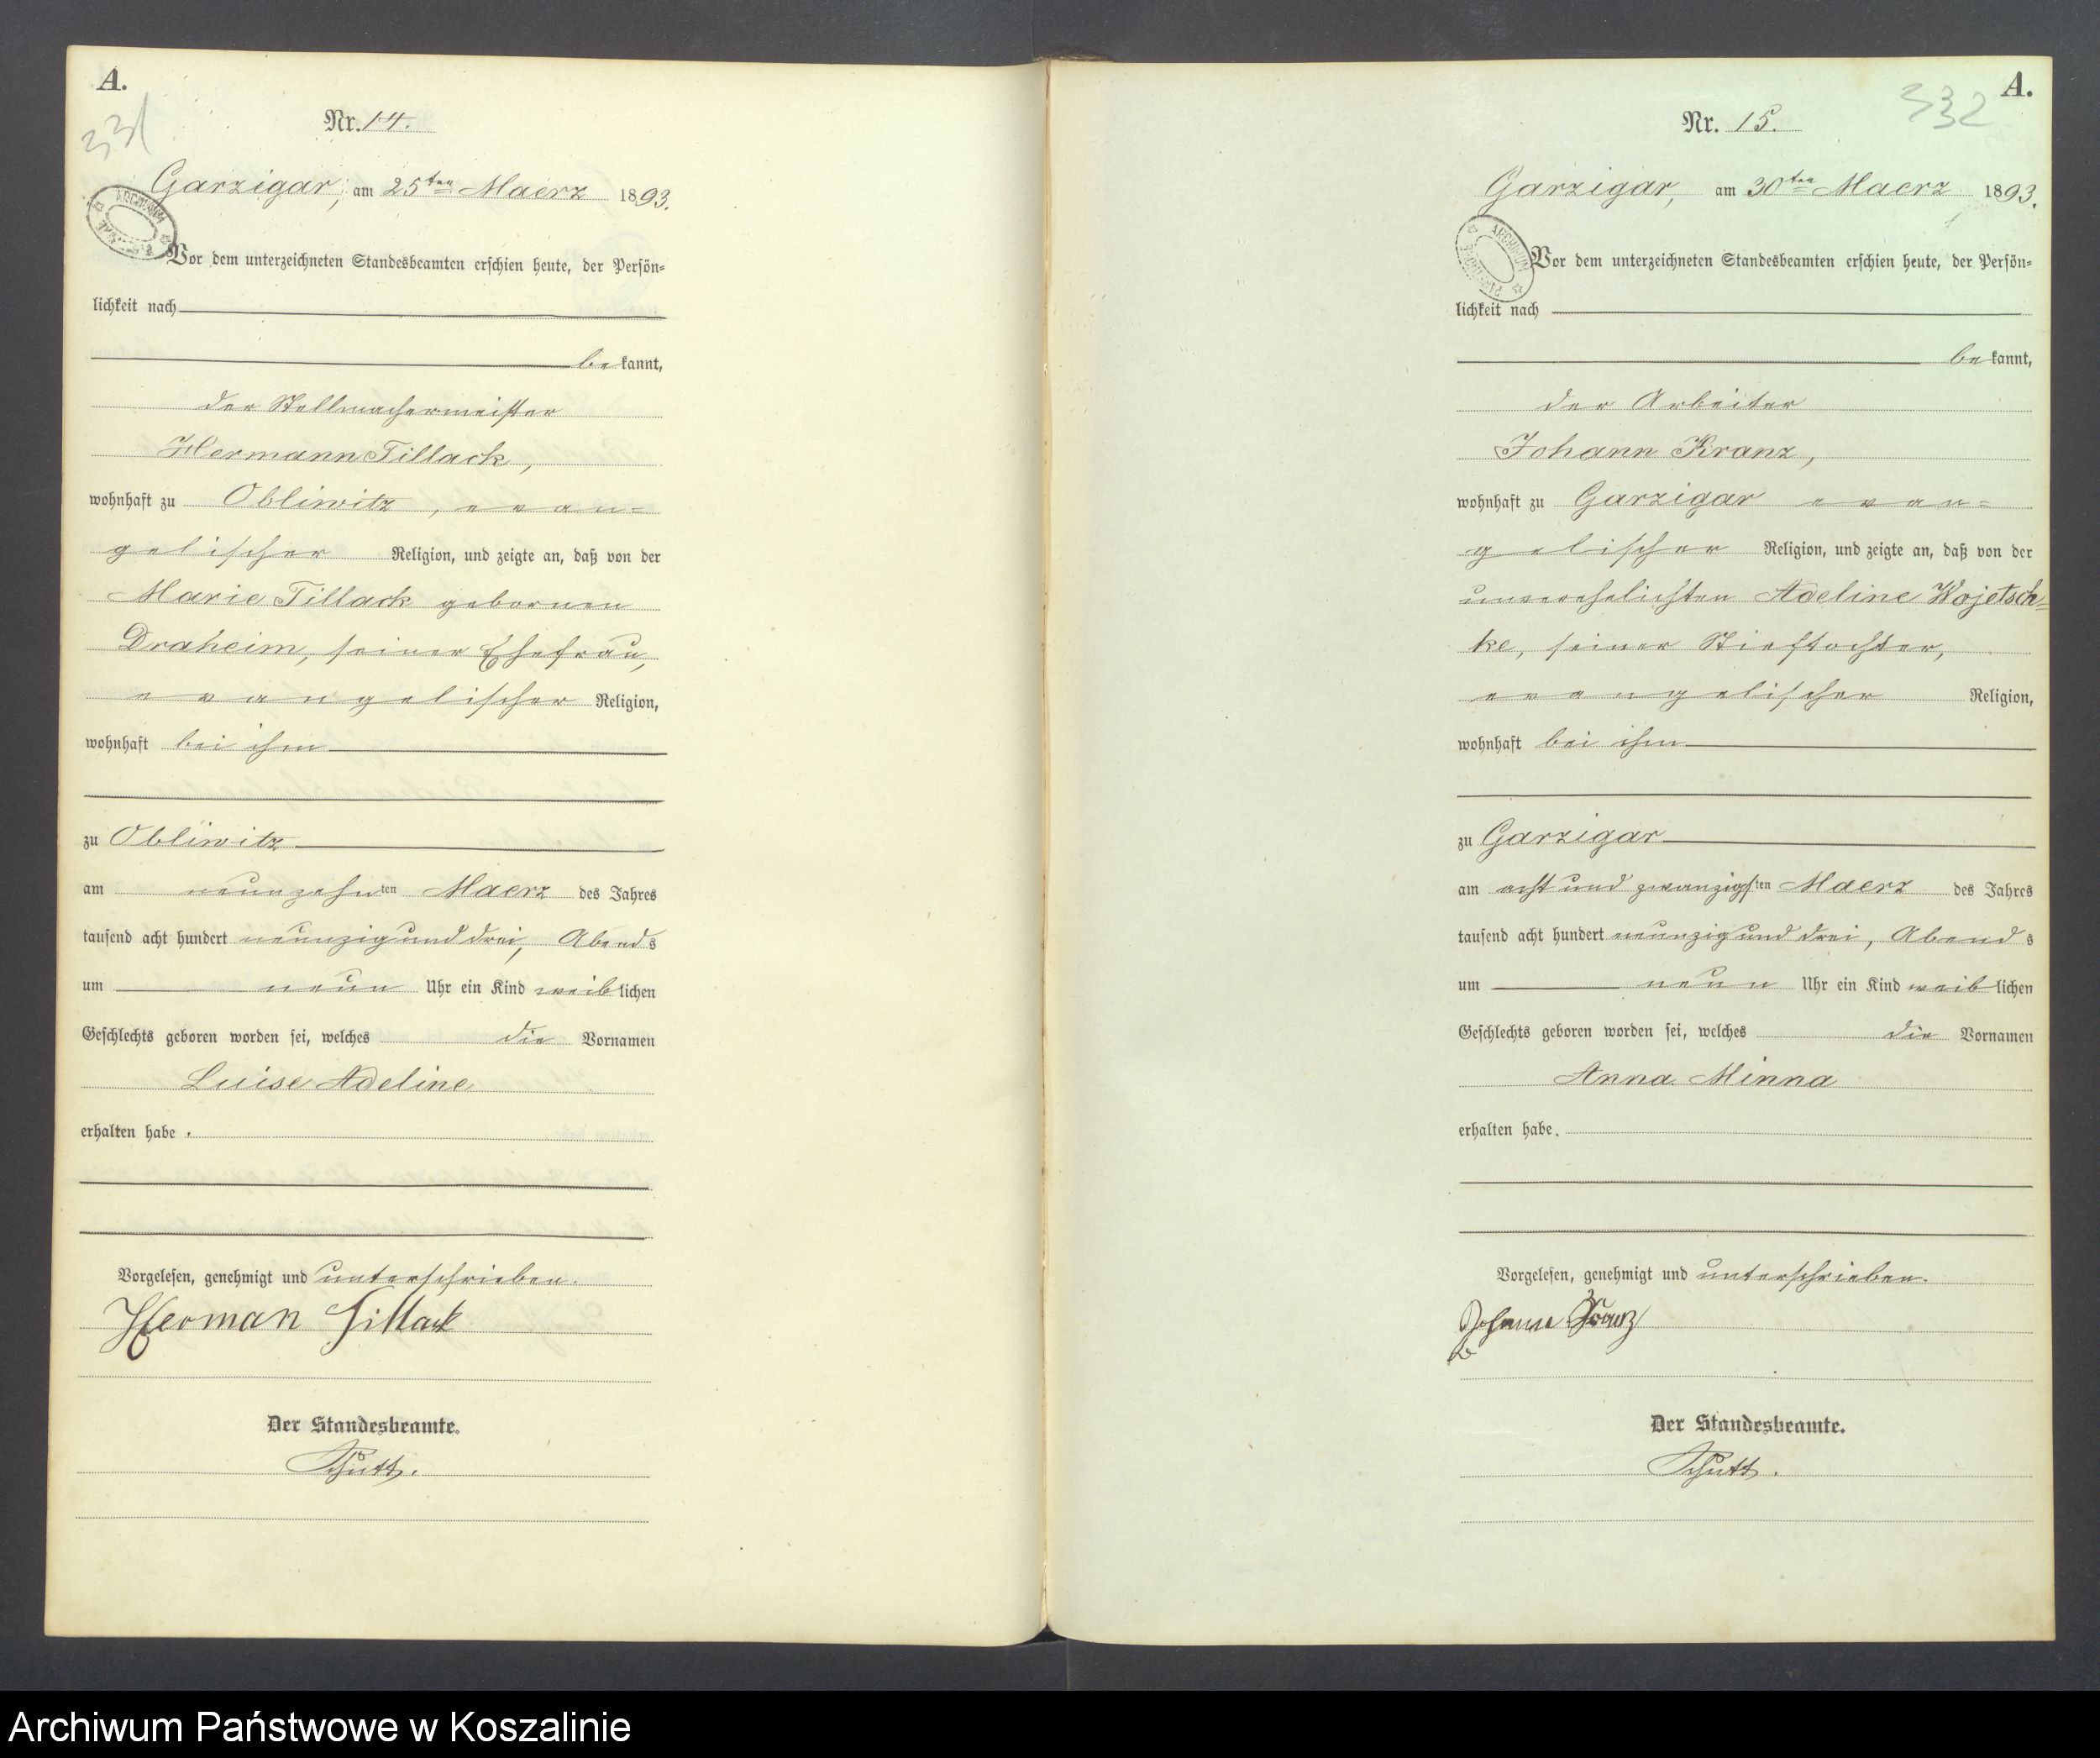 A.
331
Nr. 14.
Garzigar, am 25ten Maerz 1893.
Vor dem unterzeichneten Standesbeamten erschien heute, der Persön-
lichkeit nach
bekannt,
der Stellmachermeister
Hermann Tillack,
wohnhaft zu Obliwitz, evan=
gelischer Religion, und zeigte an, daß von der
Marie Tillack gebornen
Draheim, seiner Ehefrau,
evangelischer Religion,
wohnhaft bei ihm
zu Obliwitz
am neunzehnten Maerz des Jahres
tausend acht hundert neunzig und drei, Abends
um neun Uhr ein Kind weiblichen
Geschlechts geboren worden sei, welches die Vornamen
Luise Adeline
erhalten habe.
Vorgelesen, genehmigt und unterschrieben.
Herman Tillack
Der Standesbeamte.
Schutt.
A.
332
Nr. 15.
Garzigar, am 30ten Maerz 1893.
ARCHIWUM
Vor dem unterzeichneten Standesbeamten erschien heute, der Persön-
lichkeit nach
bekannt,
der Arbeiter
Johann Kranz,
wohnhaft zu Garzigar evan=
gelischer Religion, und zeigte an, daß von der
unverehelichten Adeline Wojetsch=
ke, seiner Stieftochter,
evangelischer Religion,
wohnhaft bei ihm
zu Garzigar
am acht und zwanzigsten Maerz des Jahres
tausend acht hundert neunzig und drei, Abends
um neun Uhr ein Kind weiblichen
Geschlechts geboren worden sei, welches die Vornamen
Anna Minna
erhalten habe.
Vorgelesen, genehmigt und unterschrieben.
Johann Kranz
Der Standesbeamte.
Schutt.
Archiwum Państwowe w Koszalinie